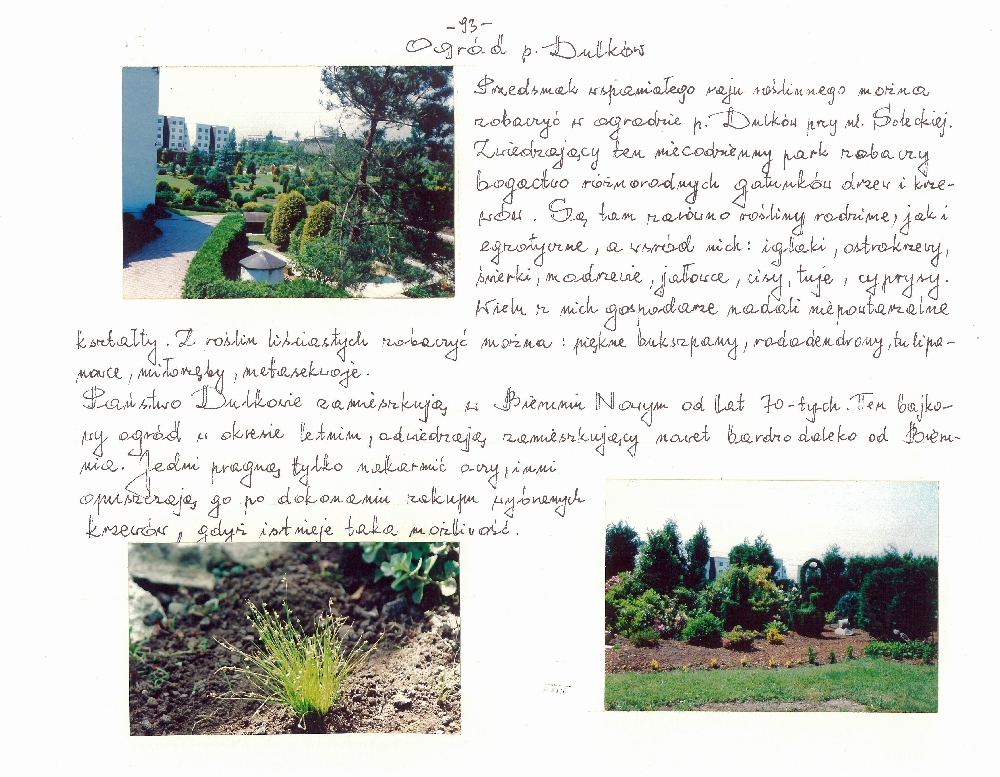 -93-
Ogród p. Dulków
Przedsmak wspaniałego raju roślinnego można
zobaczyć w ogrodzie p. Dulków przy ul. Soleckiej.
Zwiedzający ten niecodzienny park zobaczy
bogactwo różnorodnych gatunków drzew i krze-
wów. Są tam zarówno rośliny rodzime, jak i
egzotyczne, a wśród nich: iglaki, ostrokrzewy,
świerki, modrzewie, jałowce, cisy, tuje, cyprysy.
Wielu z nich gospodarze nadali niepowtarzalne
kształty. Z roślin liściastych zobaczyć można: piękne bukszpany, rododendrony, tulipa-
nowce, miłorzęby, metasekwoje.
Państwo Dulkowie zamieszkują w Bieruniu Nowym od lat 70-tych. Ten bajko-
wy ogród w okresie letnim, odwiedzają zamieszkujący nawet bardzo daleko od Bieru-
nia. Jedni pragną tylko nakarmić oczy, inni
opuszczają go po dokonaniu zakupu wybranych
krzewów, gdyż istnieje taka możliwość.